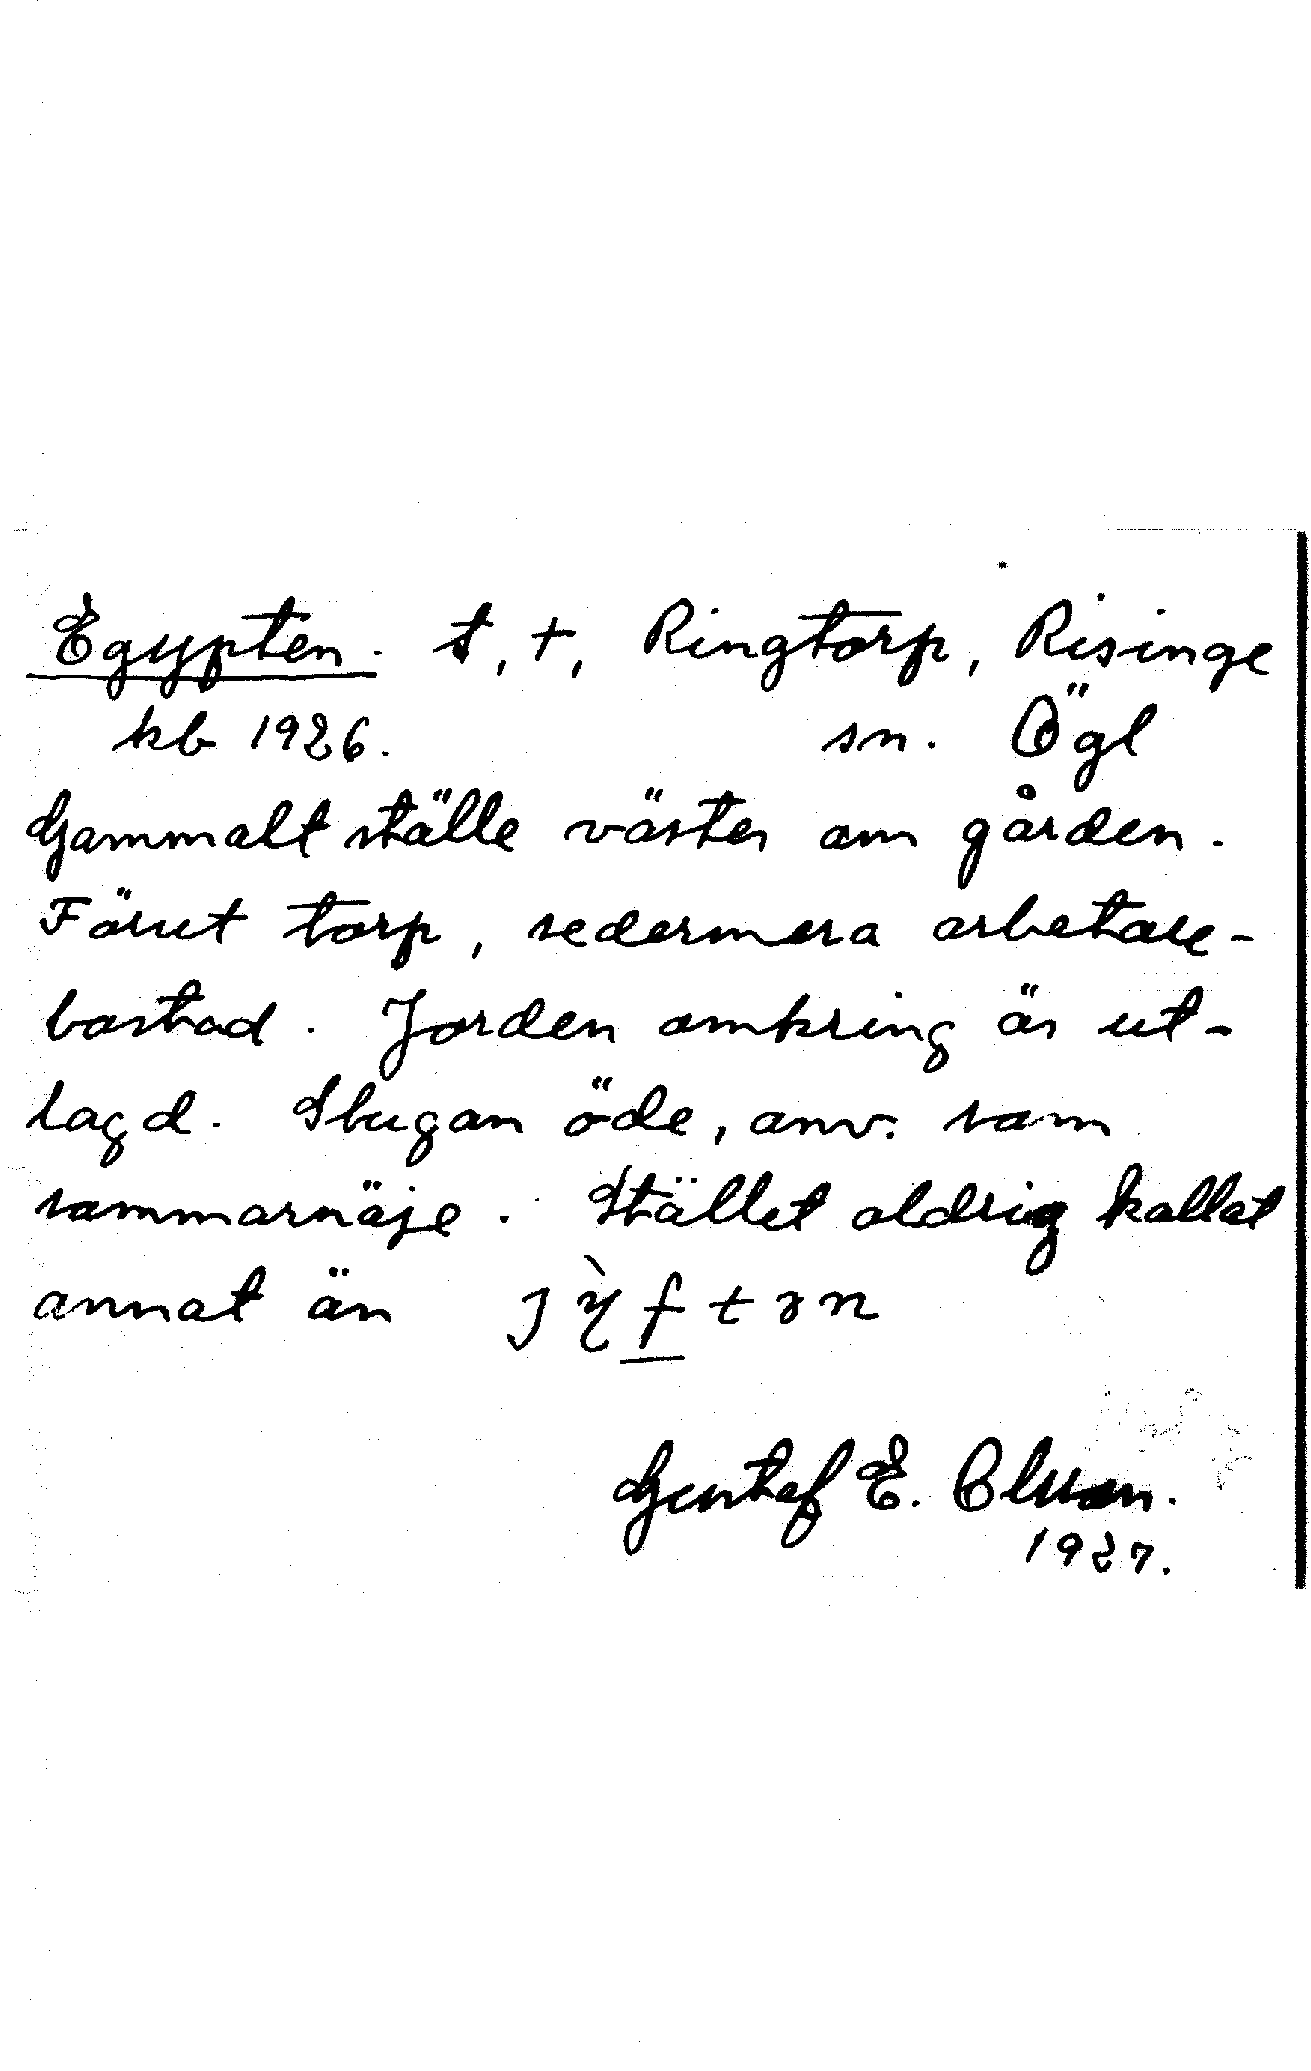 Egypten. t, t, Ringtorp, Risinge
kb 1926. sn. Ögl
Gammalt ställe väster om gården.
Förut torp, sedermera arbetare-
bostad. Jorden omkring är ut-
lagd. Stugan öde, anv. som
sommarnöje. Stället aldrig kallat
annat än jỳftən
Gustaf E. Olsson.
1927.